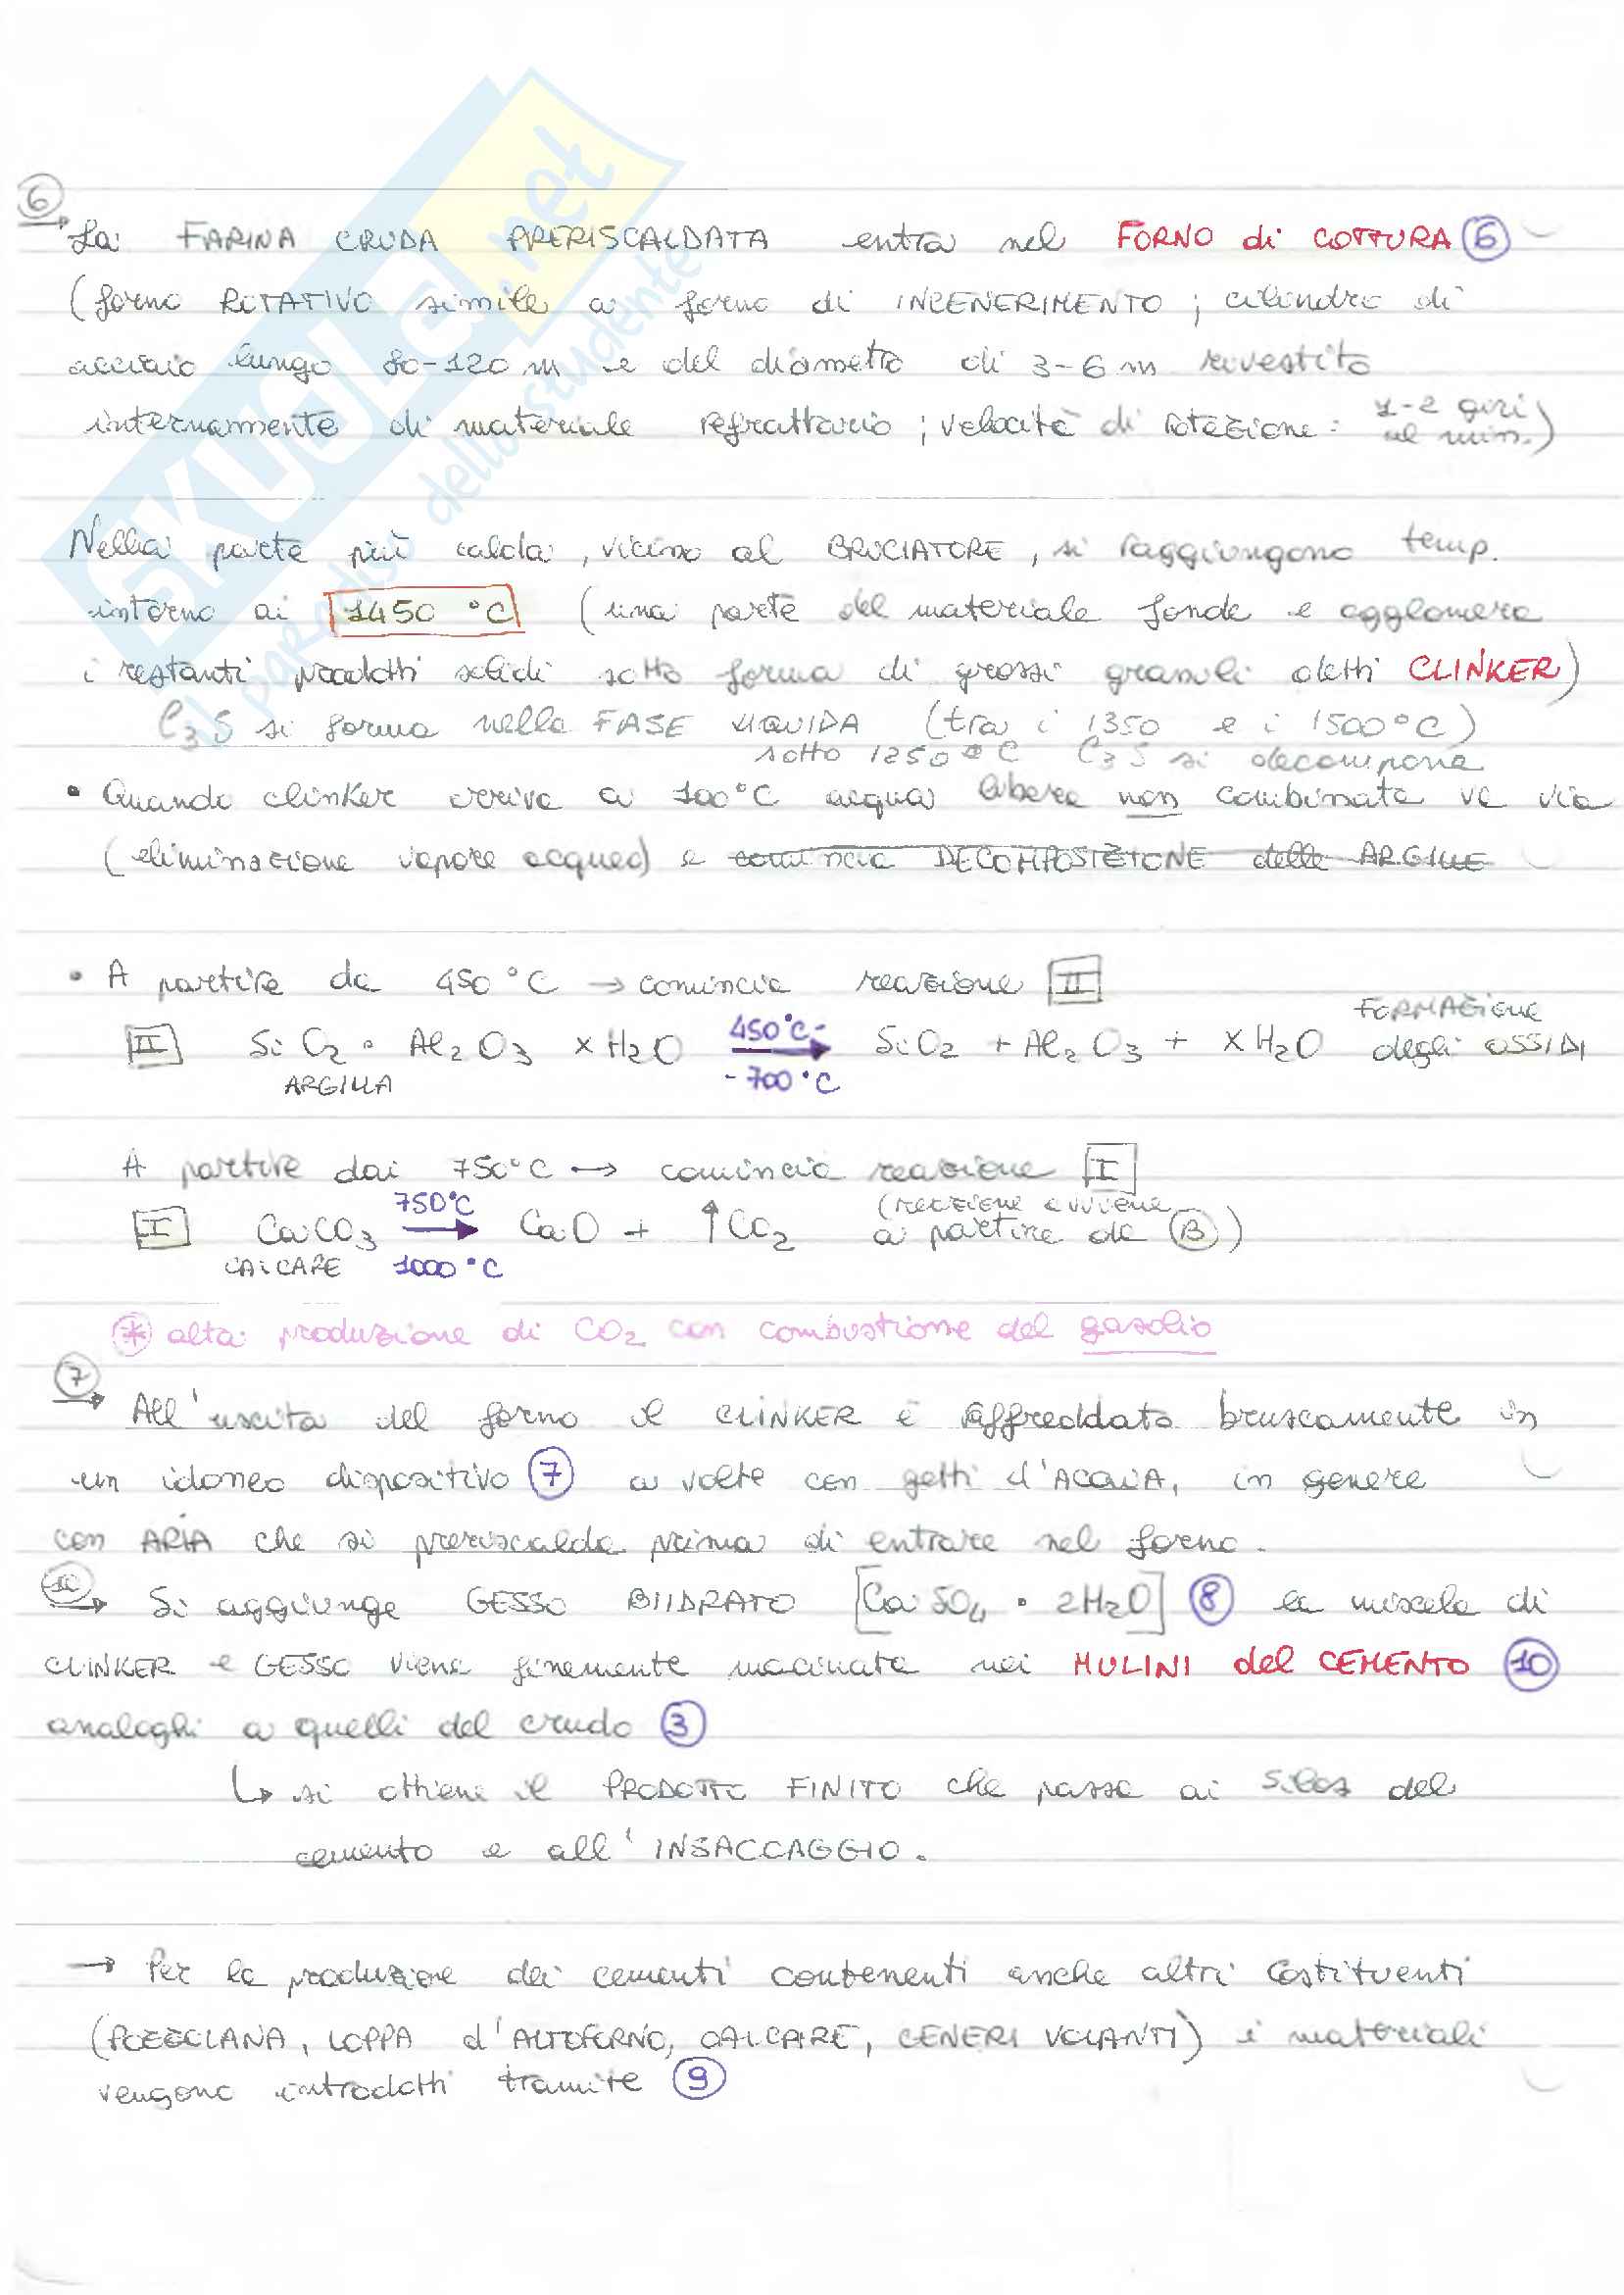 SKUOLA.net
il paradiso dello studente
6
→ La FARINA CRUDA PRERISCALDATA entra nel FORNO di COTTURA 6
(forno ROTATIVO simile a forno di INCENERIMENTO ; cilindro di
acciaio lungo 80-120 m e del diametro di 3-6 m rivestito
internamente di materiale refrattario ; velocità di rotazione : 1-2 giri
al min.)
Nella parte più calda , vicino al BRUCIATORE , si raggiungono temp.
intorno ai 1450 °C (una parte del materiale fonde e agglomera
i restanti prodotti solidi sotto forma di grossi granuli detti CLINKER)
C₃S si forma nella FASE LIQUIDA (tra i 1350 e i 1500°C)
sotto 1250°C C₃S si decompone
• Quando clinker arriva a 100°C acqua libera non combinata va via
(eliminazione vapore acqueo) e comincia DECOMPOSIZIONE delle ARGILLE
• A partire da 450°C → comincia reazione II
II SiO₂ • Al₂O₃ x H₂O 450°C- → -700°C SiO₂ + Al₂O₃ + x H₂O FORMAZIONE
ARGILLA degli OSSIDI
A partire dai 750°C → comincia reazione I
I CaCO₃ 750°C → 1000°C CaO + ↑CO₂ (reazione avviene
CALCARE a partire da B)
* alta produzione di CO₂ con combustione del gasolio
7
→ All'uscita del forno il CLINKER è raffreddato bruscamente in
un idoneo dispositivo 7 a volte con getti d'ACQUA, in genere
con ARIA che si preriscalda prima di entrare nel forno.
10
→ Si aggiunge GESSO BIIDRATO [CaSO₄ • 2H₂O] 8 la miscela di
CLINKER e GESSO viene finemente macinata nei MULINI del CEMENTO 10
analoghi a quelli del crudo 3
↳ si ottiene il PRODOTTO FINITO che passa ai Silos del
cemento e all'INSACCAGGIO.
→ Per la produzione dei cementi contenenti anche altri costituenti
(POZZOLANA, LOPPA d'ALTOFORNO, CALCARE, CENERI VOLANTI) i materiali
vengono introdotti tramite 9